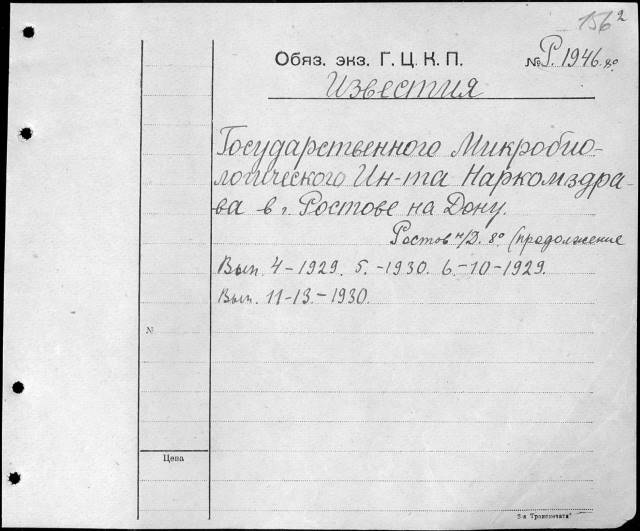 156 2
Обяз. экз. Г. Ц. К. П. № Р. 1946. 8°
Известия
Государственного Микробио-
логического Ин-та Наркомздра-
ва в г. Ростове на Дону.
Ростов н/Д. 8° (продолжение
Вып. 4-1929. 5.-1930. 6.-10-1929.
Вып. 11-13.-1930.
№
Цена